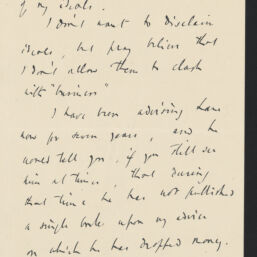 of my ideals.
I don't want to disclaim
ideals, but pray believe that
I don't allow them to clash
with "business"
I have been advising Lane
now for seven years, and he
would tell you, if you still see
him at times, that during
that time he has not published
a single book upon my advice
on which he has dropped money.